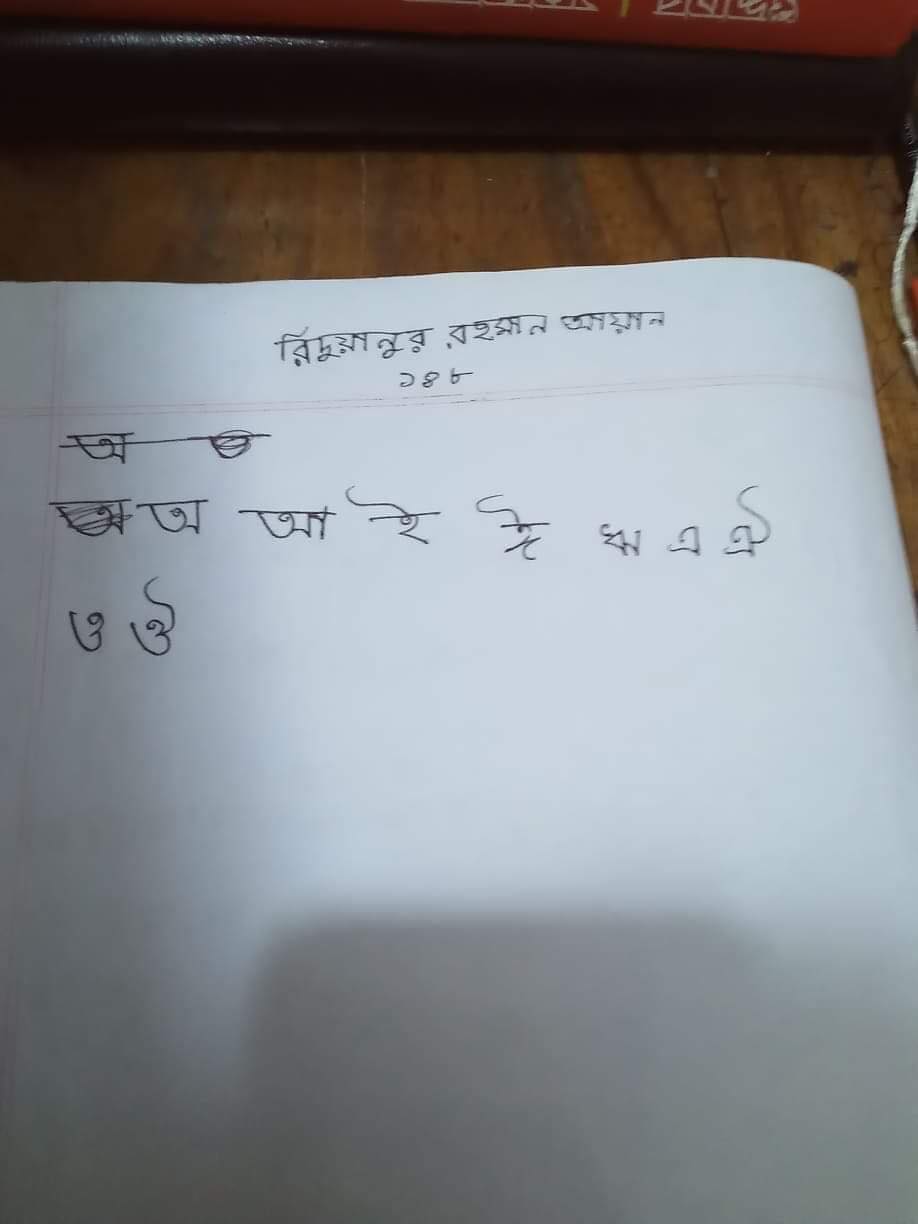 রিদুয়ানুর রহমান আয়ান
১৪৮
অ
অ আ ই ঈ ঋ এ ঐ
ও ঔ